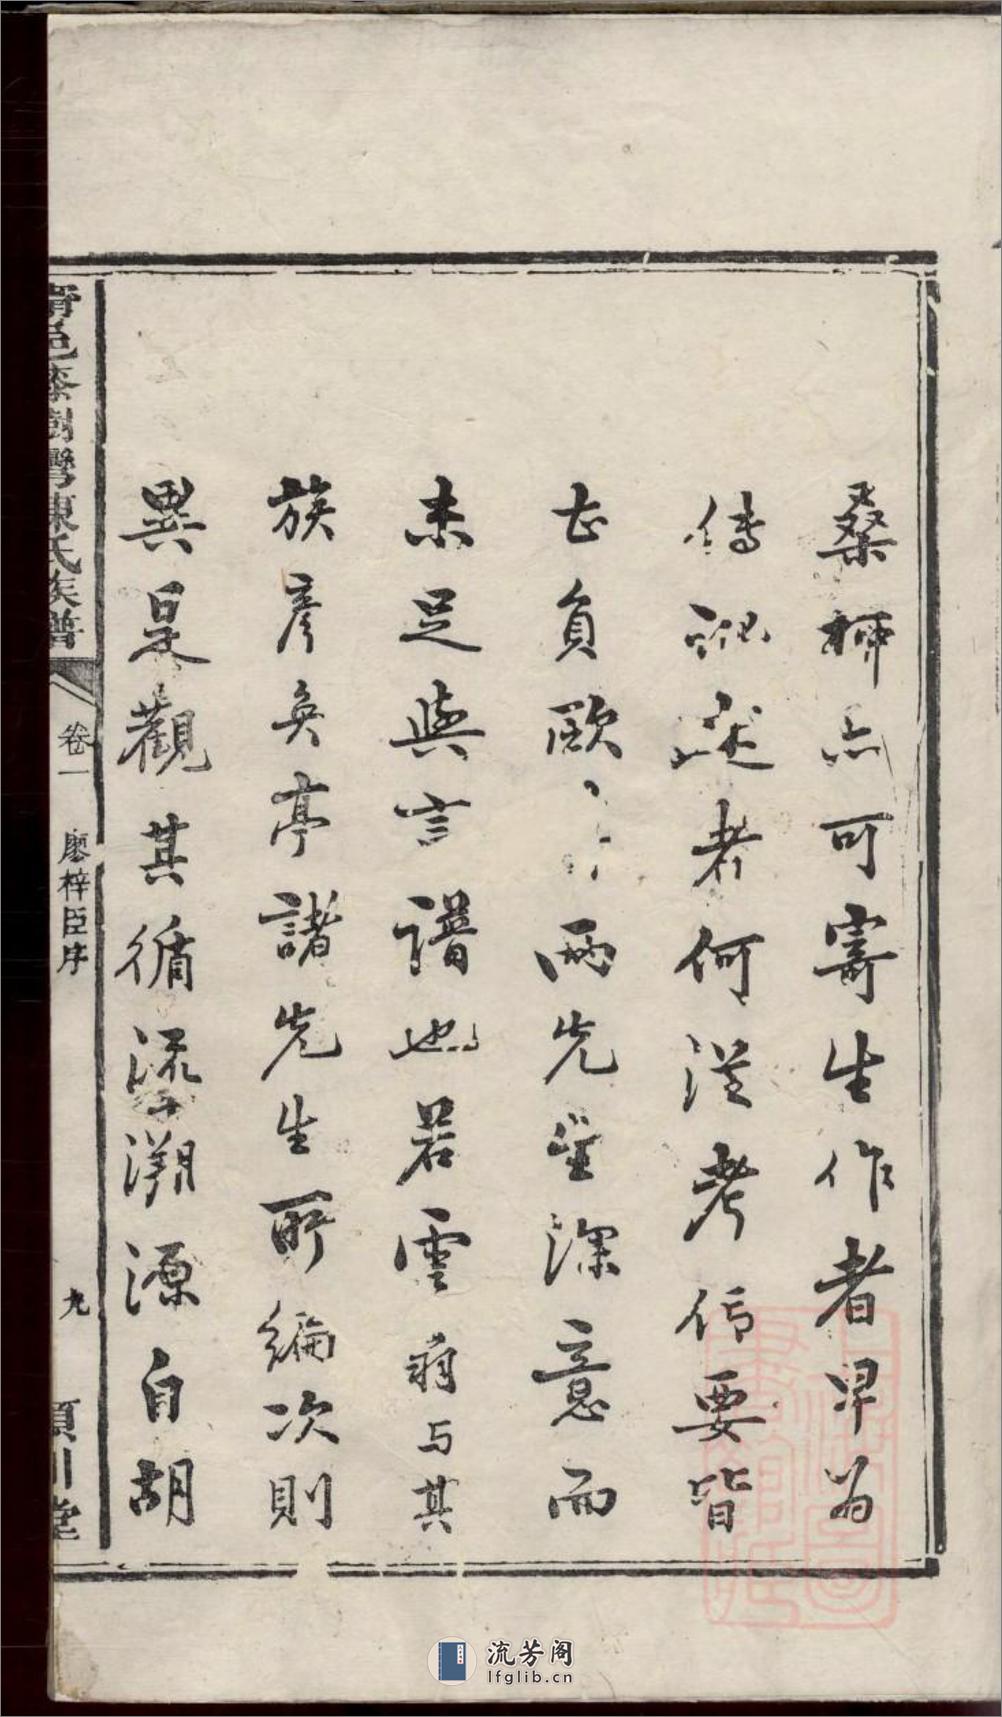 桑梓亦可寄生作者卑為
傳訛述者何從考信要皆
甚負歐、、兩先生深意而
未足與言譜也若雲崩与其
族彥奐亭諸先生所編次則
異是觀其循流溯源自胡
邑漆樹灣陳氏族譜
卷一
廖梓臣序
九
潁川堂
流芳阁
lfglib.cn